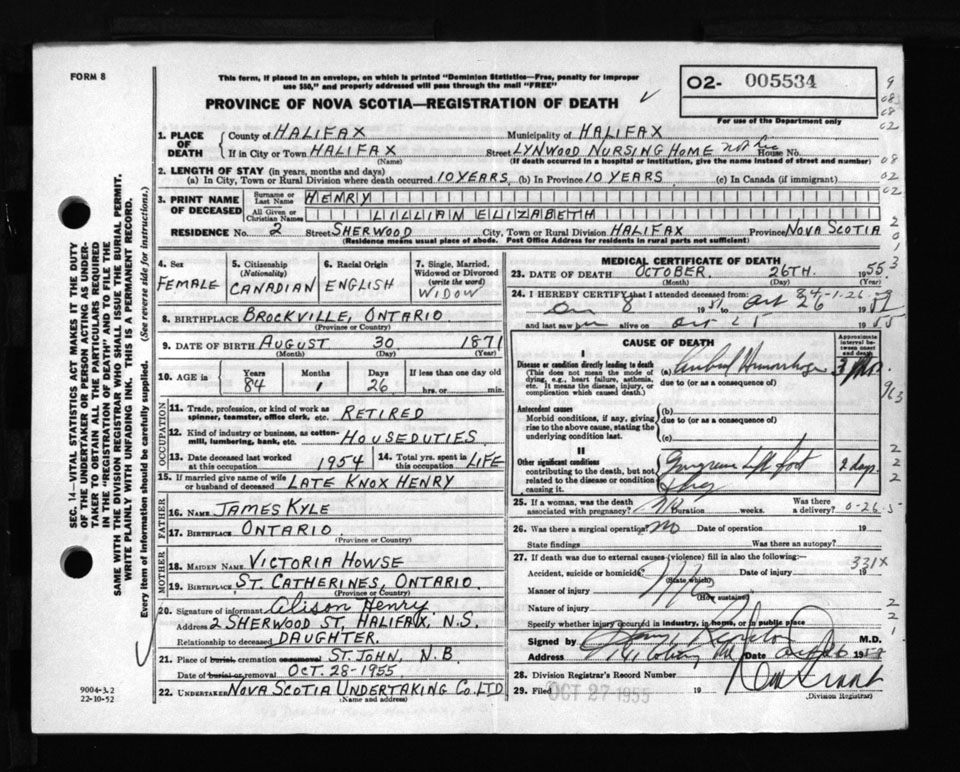 FORM 8
This form, if placed in an envelope, on which is printed "Dominion Statistics—Free, penalty for improper
use $50," and properly addressed will pass through the mail "FREE"
O2- 005534
For use of the Department only
PROVINCE OF NOVA SCOTIA—REGISTRATION OF DEATH
1. PLACE OF DEATH
County of HALIFAX Municipality of HALIFAX
If in City or Town HALIFAX Street LYNWOOD NURSING HOME House No.
(Name) (If death occurred in a hospital or institution, give the name instead of street and number)
2. LENGTH OF STAY (in years, months and days)
(a) In City, Town or Rural Division where death occurred 10 YEARS (b) In Province 10 YEARS (c) In Canada (if immigrant)
3. PRINT NAME OF DECEASED
Surname or Last Name HENRY
All Given or Christian Names LILLIAN ELIZABETH
RESIDENCE No. 2 Street SHERWOOD City, Town or Rural Division HALIFAX Province NOVA SCOTIA
(Residence means usual place of abode. Post Office Address for residents in rural parts not sufficient)
4. Sex FEMALE
5. Citizenship (Nationality) CANADIAN
6. Racial Origin ENGLISH
7. Single, Married, Widowed or Divorced (write the word) WIDOW
8. BIRTHPLACE BROCKVILLE, ONTARIO
(Province or Country)
9. DATE OF BIRTH AUGUST 30 1871
(Month) (Day) (Year)
10. AGE in Years 84 Months 1 Days 26 If less than one day old hrs. or min.
OCCUPATION
11. Trade, profession, or kind of work as spinner, teamster, office clerk, etc. RETIRED
12. Kind of industry or business, as cotton-mill, lumbering, bank, etc. HOUSEDUTIES
13. Date deceased last worked at this occupation 1954
14. Total yrs. spent in this occupation LIFE
15. If married give name of wife or husband of deceased LATE KNOX HENRY
FATHER
16. NAME JAMES KYLE
17. BIRTHPLACE ONTARIO
(Province or Country)
MOTHER
18. MAIDEN NAME VICTORIA HOWSE
19. BIRTHPLACE ST. CATHERINES, ONTARIO
(Province or Country)
20. Signature of informant Alison Henry
Address 2 SHERWOOD ST, HALIFAX, N.S.
Relationship to deceased DAUGHTER
21. Place of burial, cremation or removal ST. JOHN, N.B
Date of burial or removal OCT. 28-1955
22. UNDERTAKER NOVA SCOTIA UNDERTAKING CO. LTD
(Name and address)
MEDICAL CERTIFICATE OF DEATH
23. DATE OF DEATH OCTOBER 26TH. 1955
(Month) (Day) (Year)
24. I HEREBY CERTIFY that I attended deceased from:
and last saw alive on
CAUSE OF DEATH
Approximate interval between onset and death
I
Disease or condition directly leading to death
(This does not mean the mode of dying, e.g., heart failure, asthenia, etc. It means the disease, injury, or complication which caused death.)
(a)
due to (or as a consequence of)
Antecedent causes
Morbid conditions, if any, giving rise to the above cause, stating the underlying condition last.
(b)
due to (or as a consequence of)
(c)
II
Other significant conditions
contributing to the death, but not related to the disease or condition causing it.
Gangrene Left foot
2 days
25. If a woman, was the death associated with pregnancy? Duration weeks. Was there a delivery?
26. Was there a surgical operation? No Date of operation 19
State findings Was there an autopsy?
27. If death was due to external causes (violence) fill in also the following:—
Accident, suicide or homicide? Date of injury 19
(State which)
Manner of injury
(How sustained)
Nature of injury
Specify whether injury occurred in industry, in home, or in public place
Signed by M.D.
Address Date
28. Division Registrar's Record Number
29. Filed OCT 27 1955 19
(Division Registrar)
331X
9004-3.2
22-10-52
SEC. 14—VITAL STATISTICS ACT MAKES IT THE DUTY
OF THE UNDERTAKER OR PERSON ACTING AS UNDER-
TAKER TO OBTAIN ALL THE PARTICULARS REQUIRED
IN THE "REGISTRATION OF DEATH" AND TO FILE THE
SAME WITH THE DIVISION REGISTRAR WHO SHALL ISSUE THE BURIAL PERMIT.
WRITE PLAINLY WITH UNFADING INK. THIS IS A PERMANENT RECORD.
Every item of information should be carefully supplied. (See reverse side for instructions.)